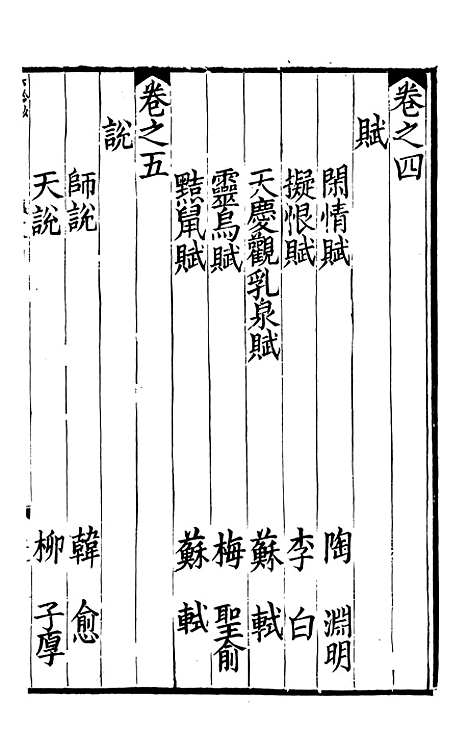 卷之四
賦
閑情賦 陶淵明
擬恨賦 李白
天慶觀乳泉賦 蘇軾
靈烏賦 梅聖俞
黠鼠賦 蘇軾
卷之五
說
師說 韓愈
天說 柳子厚